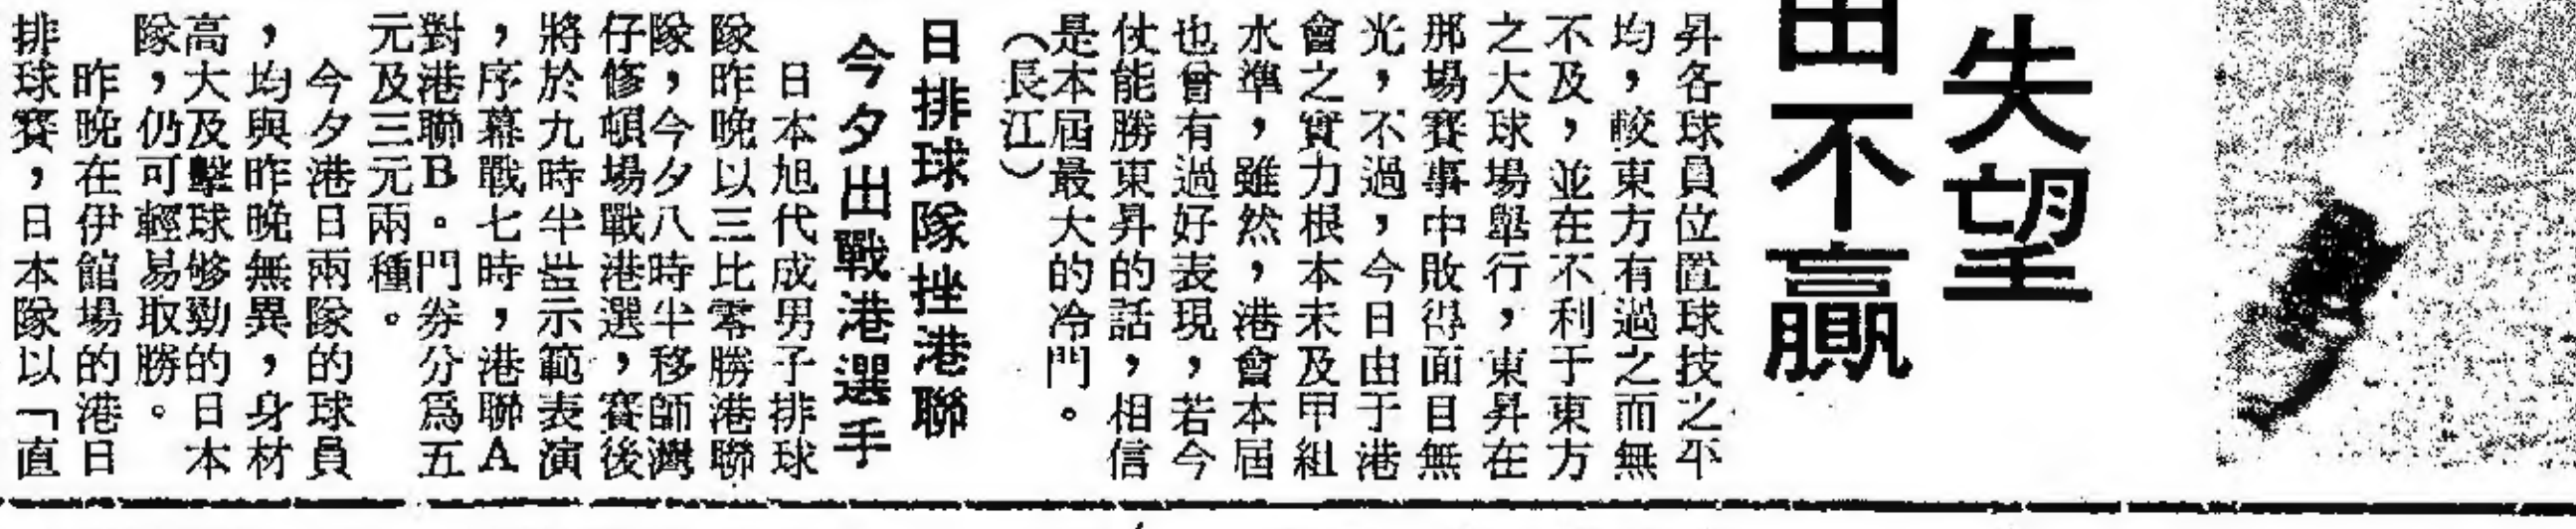 失望
由不贏
昇各球員位置球技之平
均，較東方有過之而無
不及，並在不利于東方
之大球場舉行，東昇在
那場賽事中敗得面目無
光，不過，今日由于港
會之實力根本未及甲組
水準，雖然，港會本屆
也曾有過好表現，若今
仗能勝東昇的話，相信
是本屆最大的冷門。
（長江）
日排球隊挫港聯
今夕出戰港選手
日本旭代成男子排球
隊昨晚以三比零勝港聯
隊，今夕八時半移師灣
仔修頓場戰港選，賽後
將於九時半示範表演
，序幕戰七時，港聯A
對港聯B。門券分爲五
元及三元兩種。
今夕港日兩隊的球員
，均與昨晚無異，身材
高大及擊球够勁的日本
隊，仍可輕易取勝。
昨晚在伊館場的港日
排球賽，日本隊以「直